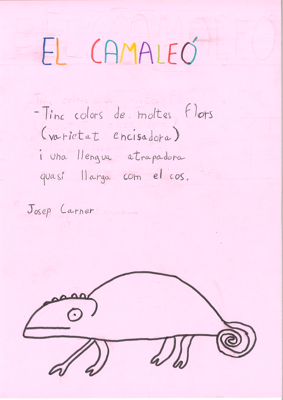 EL CAMALEÓ
-Tinc colors de moltes flors
(varietat encisadora)
i una llengua atrapadora
quasi llarga com el cos.
Josep Carner